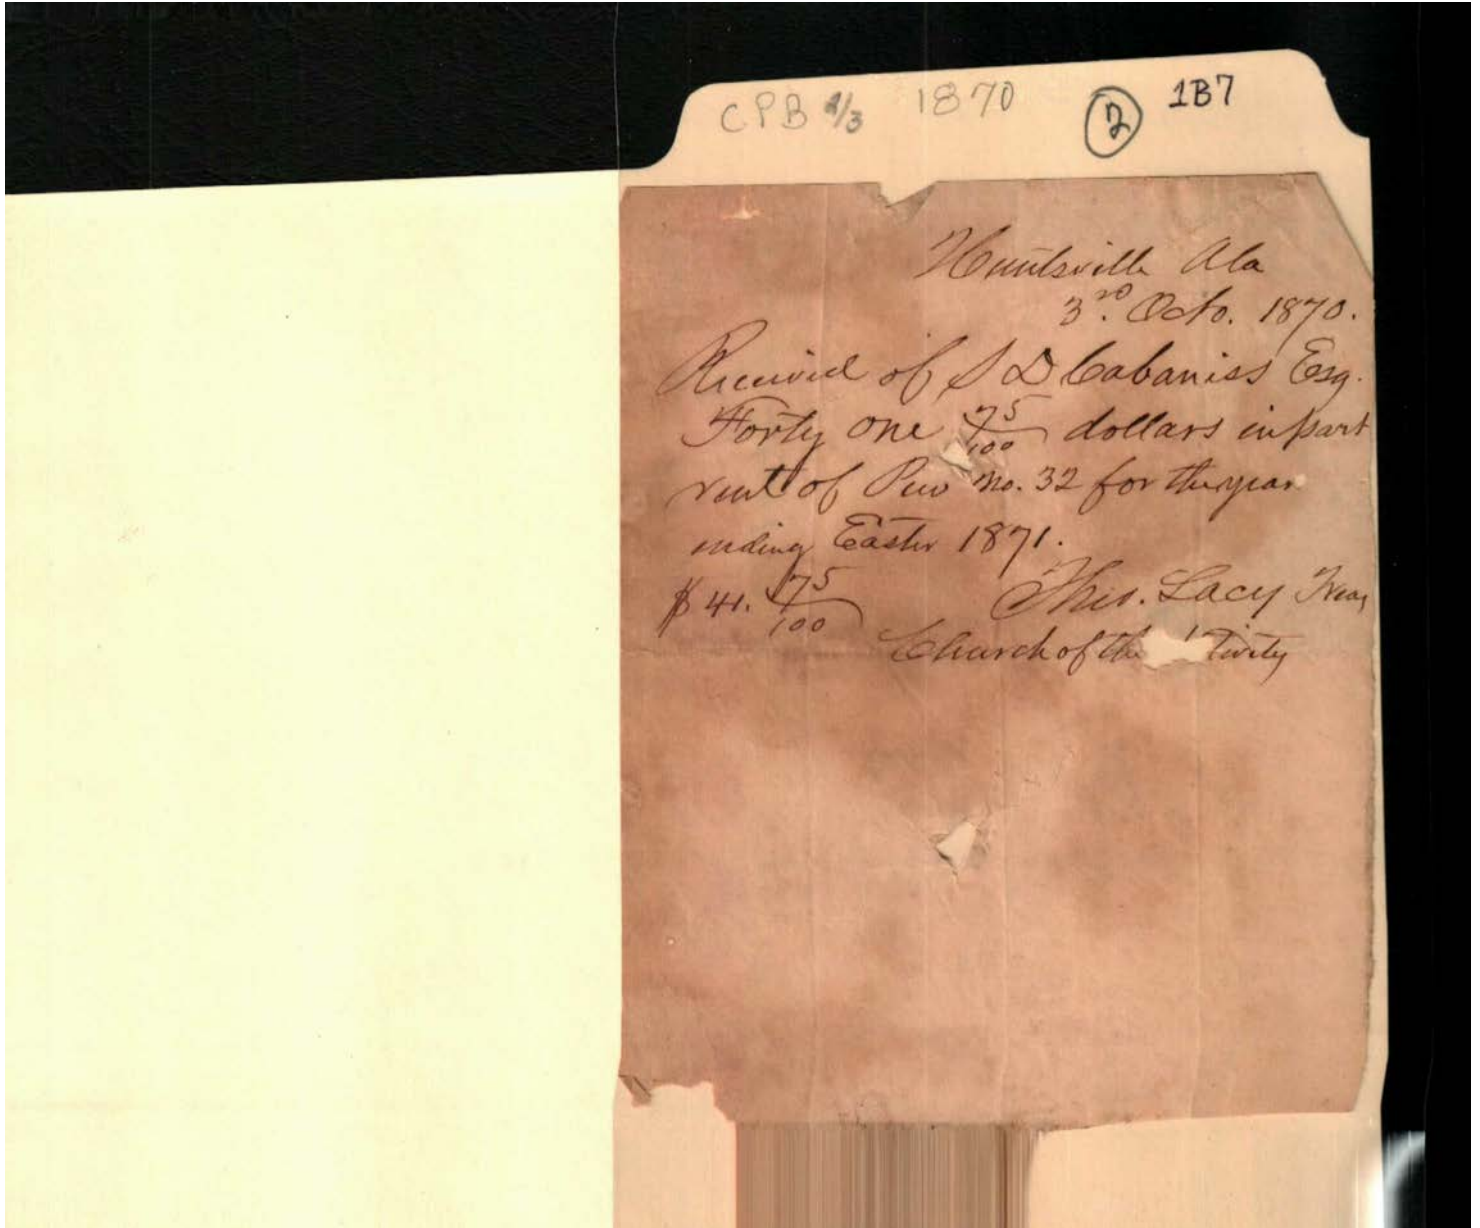 CPB 2/3 1870 2 1B7
Huntsville Ala
3rd Octo. 1870.
Received of S D Cabaniss Esq.
Forty one 75/100 dollars in part
rent of Pew No. 32 for the year
ending Easter 1871.
$41. 75/100 Thos. Lacy Treas
Church of the tivity